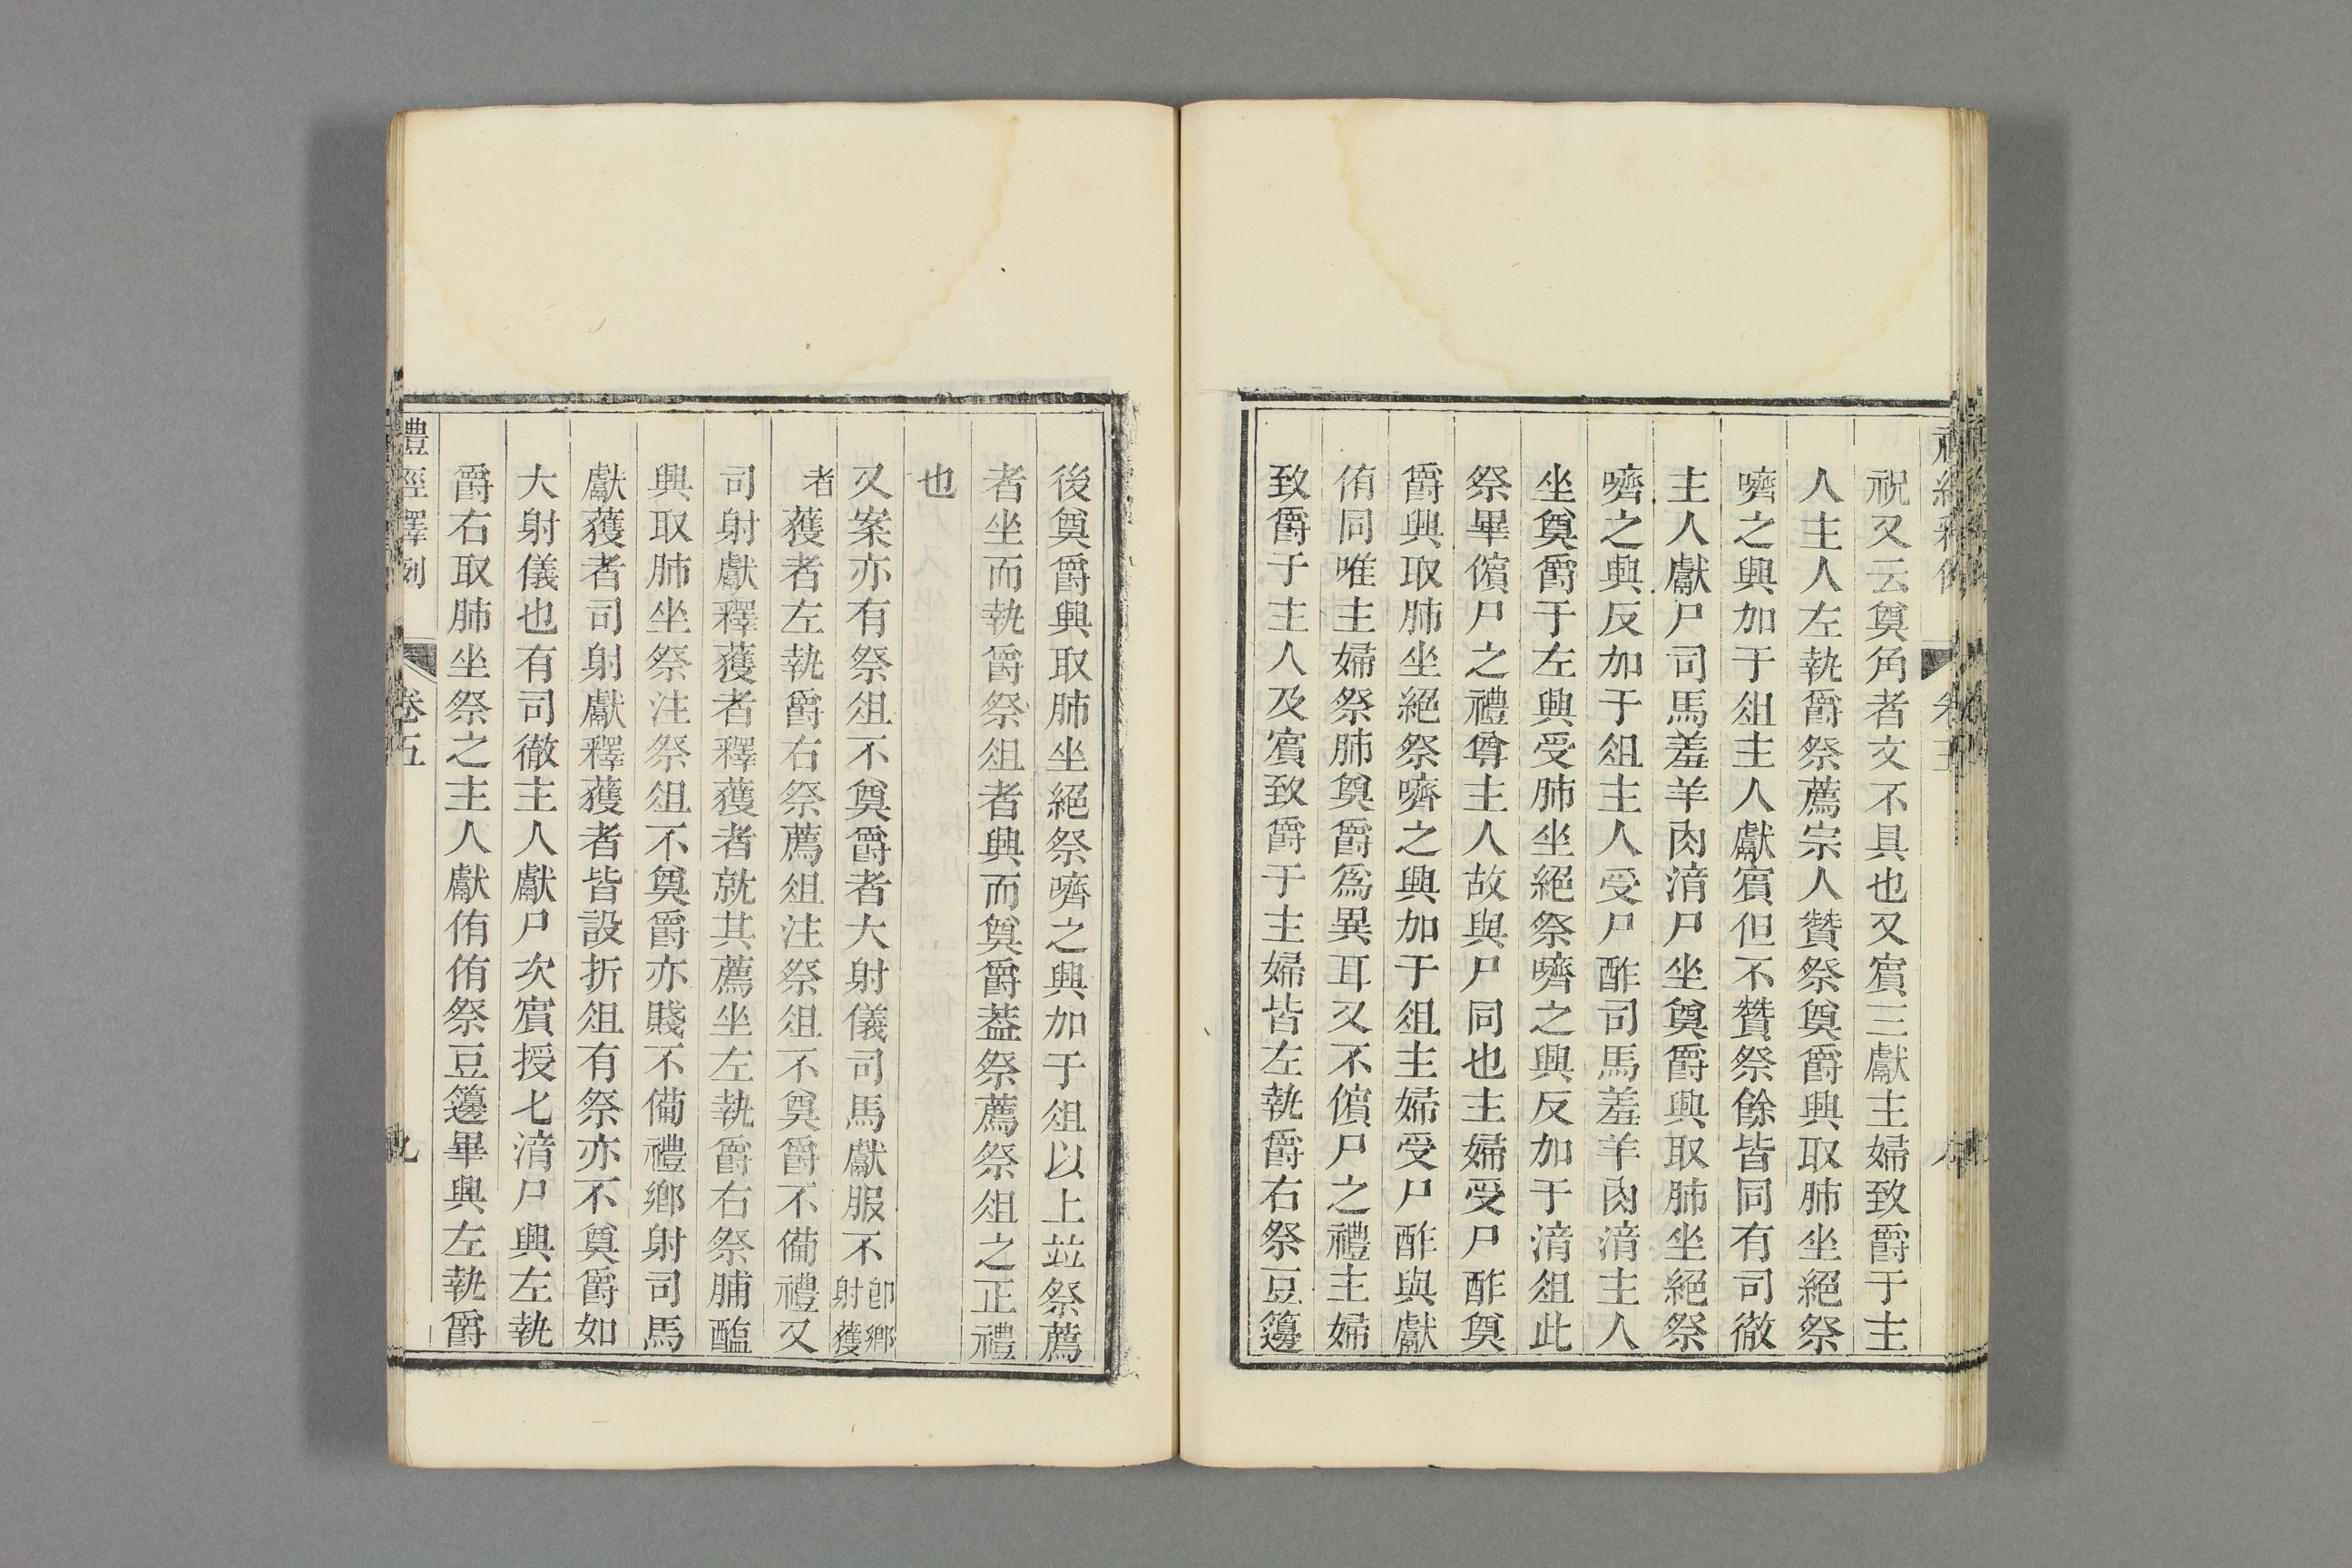 祝又云奠角者文不具也又賓三獻主婦致爵于主
人主人左執爵祭薦宗人贊祭奠爵興取肺坐絕祭
嚌之興加于俎主人獻賓但不贊祭餘皆同有司徹
主人獻尸司馬羞羊肉湆尸坐奠爵興取肺坐絕祭
嚌之興反加于俎主人受尸酢司馬羞羊肉湆主人
坐奠爵于左興受肺坐絕祭嚌之興反加于湆俎此
祭畢儐尸之禮尊主人故與尸同也主婦受尸酢奠
爵興取肺坐絕祭嚌之興加于俎主婦受尸酢與獻
侑同唯主婦祭肺奠爵爲異耳又不儐尸之禮主婦
致爵于主人及賓致爵于主婦皆左執爵右祭豆籩
後奠爵興取肺坐絕祭嚌之興加于俎以上並祭薦
者坐而執爵祭俎者興而奠爵葢祭薦祭俎之正禮
也
又案亦有祭俎不奠爵者大射儀司馬獻服不卽鄉射獲
者獲者左執爵右祭薦俎注祭俎不奠爵不備禮又
司射獻釋獲者釋獲者就其薦坐左執爵右祭脯醢
興取肺坐祭注祭俎不奠爵亦賤不備禮鄉射司馬
獻獲者司射獻釋獲者皆設折俎有祭亦不奠爵如
大射儀也有司徹主人獻尸次賓授匕湆尸興左執
爵右取肺坐祭之主人獻侑侑祭豆籩畢興左執爵
禮經釋例 卷五 九